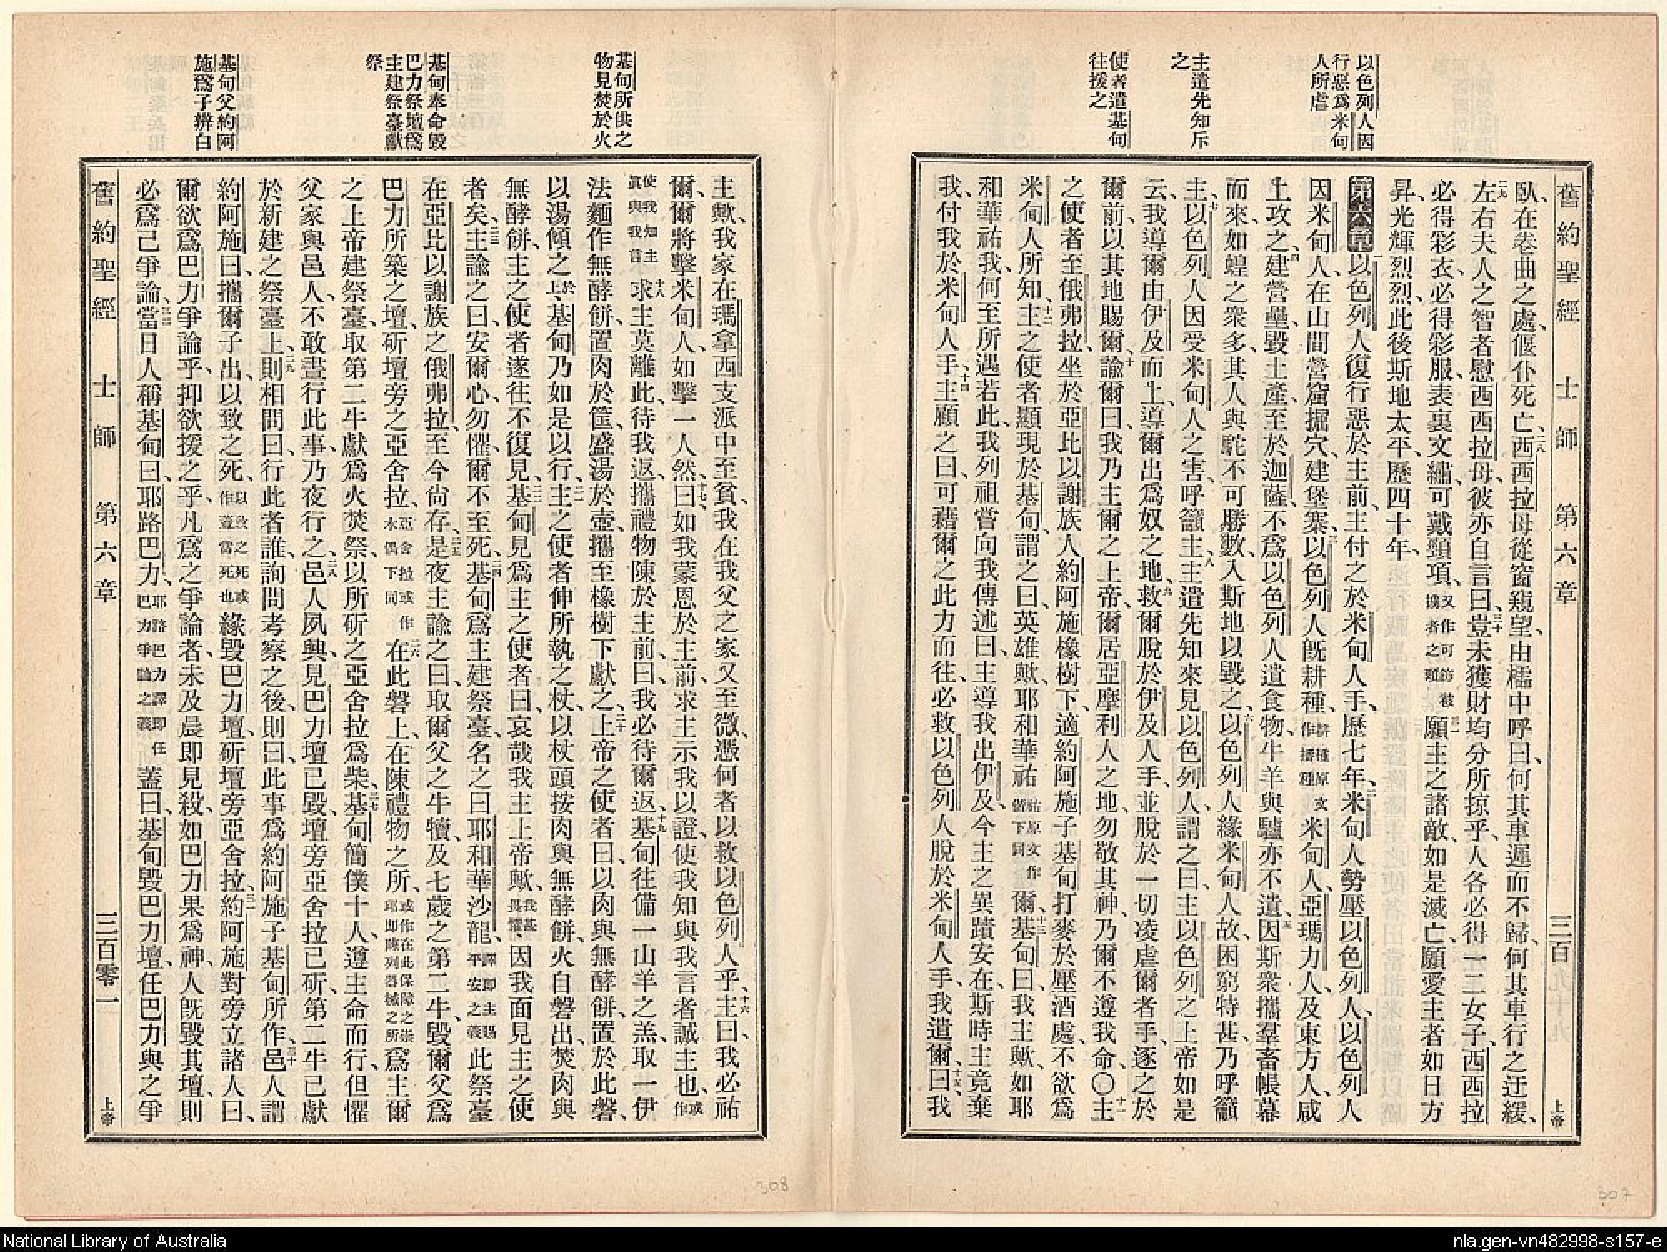 以色列人因
行惡爲米甸
人所虐
主遣先知斥
之
使者遣基甸
往援之
舊約聖經 士師 第六章 三百 上帝
臥在卷曲之處、偃仆死亡、二八西西拉母從窗窺望、由櫺中呼曰、何其車遲而不歸、何其車行之迂緩、
二九左右夫人之智者慰西西拉母、彼亦自言曰、三十豈未獲財均分所掠乎、人各必得一二女子、西西拉
必得彩衣、必得彩服、表裏文繡、可戴頸項、三一願主之諸敵、如是滅亡、願愛主者如日方
昇、光輝烈烈、此後斯地太平、歷四十年、
第六章 以色列人復行惡於主前、主付之於米甸人手、歷七年、二米甸人勢壓以色列人、以色列人
因米甸人、在山間營窟掘穴、建堡寨、三以色列人既耕種、耕種原文作播種米甸人、亞瑪力人、及東方人、咸
上攻之、四建營壘、毀土產、至於迦薩、不爲以色列人遺食物、牛羊與驢亦不遺、五因斯衆攜羣畜帳幕
而來、如蝗之衆多、其人與駝、不可勝數、入斯地以毀之、六以色列人緣米甸人故、困窮特甚、乃呼籲
主、七以色列人因受米甸人之害、呼籲主、八主遣先知來見以色列人、謂之曰、主以色列之上帝如是
云、我導爾由伊及而上、導爾出爲奴之地、九救爾脫於伊及人手、並脫於一切凌虐爾者手、逐之於
爾前、以其地賜爾、十諭爾曰、我乃主爾之上帝、爾居亞摩利人之地、勿敬其神、乃爾不遵我命、〇十一主
之使者至俄弗拉、坐於亞比以謝族人約阿施橡樹下、適約阿施子基甸打麥於壓酒處、不欲爲
米甸人所知、十二主之使者顯現於基甸、謂之曰、英雄歟、耶和華祐爾、十三基甸曰、我主歟、如耶
和華祐我、何至所遇若此、我列祖嘗向我傳述曰、主導我出伊及、今主之異蹟安在、斯時主竟棄
我、付我於米甸人手、十四主顧之曰、可藉爾之此力而往、必救以色列人脫於米甸人手、我遣爾、十五曰、我
307
基甸所供之
物見焚於火
基甸奉命毀
巴力祭壇爲
主建祭臺獻
祭
基甸父約阿
施爲子辨白
主歟、我家在瑪拿西支派中至貧、我在我父之家又至微、憑何者以救以色列人乎、十六主曰、我必祐
爾、爾將擊米甸人如擊一人然、十七曰、如我蒙恩於主前、求主示我以證、使我知與我言者誠主也、或作
使我知主眞與我言十八求主莫離此、待我返、攜禮物陳於主前、曰、我必待爾返、十九基甸往備一山羊之羔、取一伊
法麵作無酵餅、置肉於筐、盛湯於壺、攜至橡樹下獻之、二十上帝之使者曰、以肉與無酵餅置於此磐、
以湯傾之於上、基甸乃如是以行、二一主之使者伸所執之杖、以杖頭按肉與無酵餅、火自磐出、焚肉與
無酵餅、主之使者遂往不復見、二二基甸見爲主之使者、曰、哀哉、我主上帝歟、我甚畏懼因我面見主之使
者矣、二三主諭之曰、安爾心、勿懼、爾不至死、二四基甸爲主建祭臺、名之曰耶和華沙龍、譯即主賜平安之義此祭臺
在亞比以謝族之俄弗拉、至今尚存、二五是夜主諭之曰、取爾父之牛犢、及七歲之第二牛、毀爾父爲
巴力所築之壇、斫壇旁之亞舍拉、亞舍拉或作木偶下同二六在此磐上、在陳禮物之所、爲主爾
之上帝建祭臺、取第二牛獻爲火焚祭、以所斫之亞舍拉爲柴、二七基甸簡僕十人、遵主命而行、但懼
父家與邑人、不敢晝行此事、乃夜行之、二八邑人夙興、見巴力壇已毀、壇旁亞舍拉已斫、第二牛已獻
於新建之祭臺上、二九則相問曰、行此者誰、詢問考察之後、則曰、此事爲約阿施子基甸所作、三十邑人謂
約阿施曰、攜爾子出以致之死、緣毀巴力壇、斫壇旁亞舍拉、三一約阿施對旁立諸人曰、
爾欲爲巴力爭論乎、抑欲援之乎、凡爲之爭論者、未及晨即見殺、如巴力果爲神、人既毀其壇、則
必爲己爭論、三二當日人稱基甸曰耶路巴力、耶路巴力譯即任巴力爭論之義蓋曰、基甸毀巴力壇、任巴力與之爭
舊約聖經 士師 第六章 三百零一 上帝
308
National Library of Australia
nla.gen-vn482998-s157-e